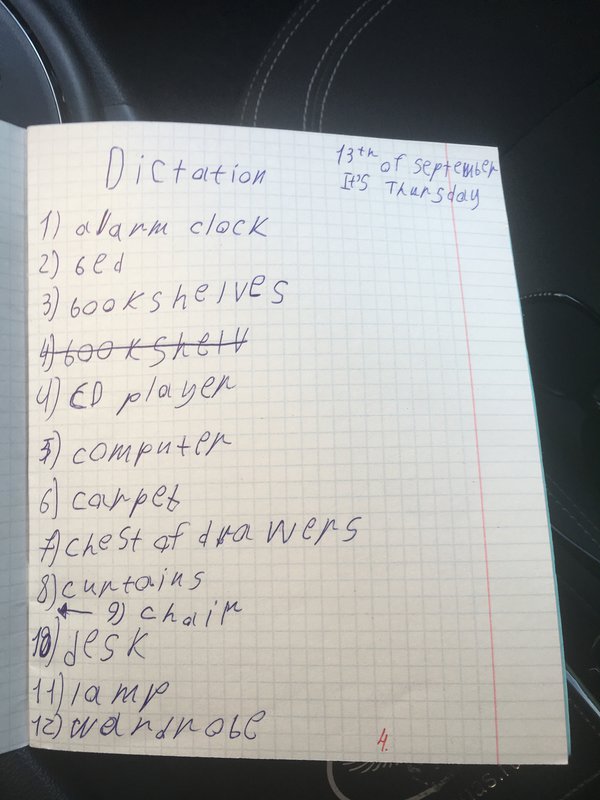 Dictation
13th of september
It's Thursday
1) alarm clock
2) bed
3) bookshelves
4) bookshelv
4) CD player
5) computer
6) carpet
7) chest of drawers
8) curtains
← 9) chair
10) desk
11) lamp
12) wardrobe
4.